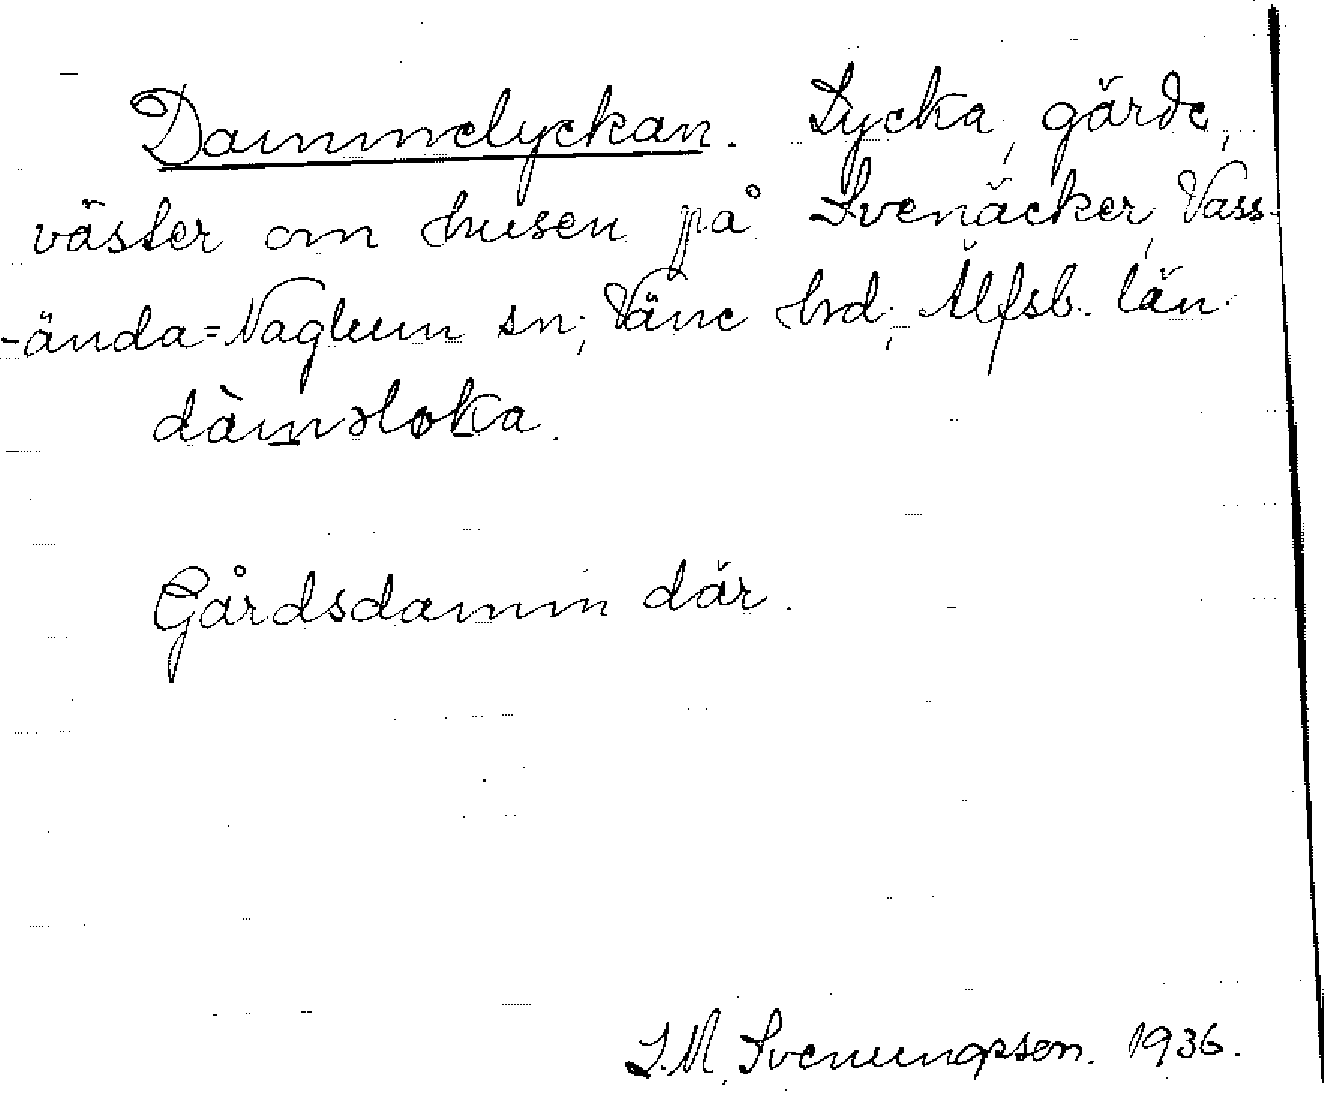 Dammelyckan. Lycka, gärde,
väster om husen på Svenäcker, Vass-
-ända=Naglum sn; Väne hrd; Älfsb. län.
dàmǝloka.
Gårdsdamm där.
S.M. Svenungsson. 1936.